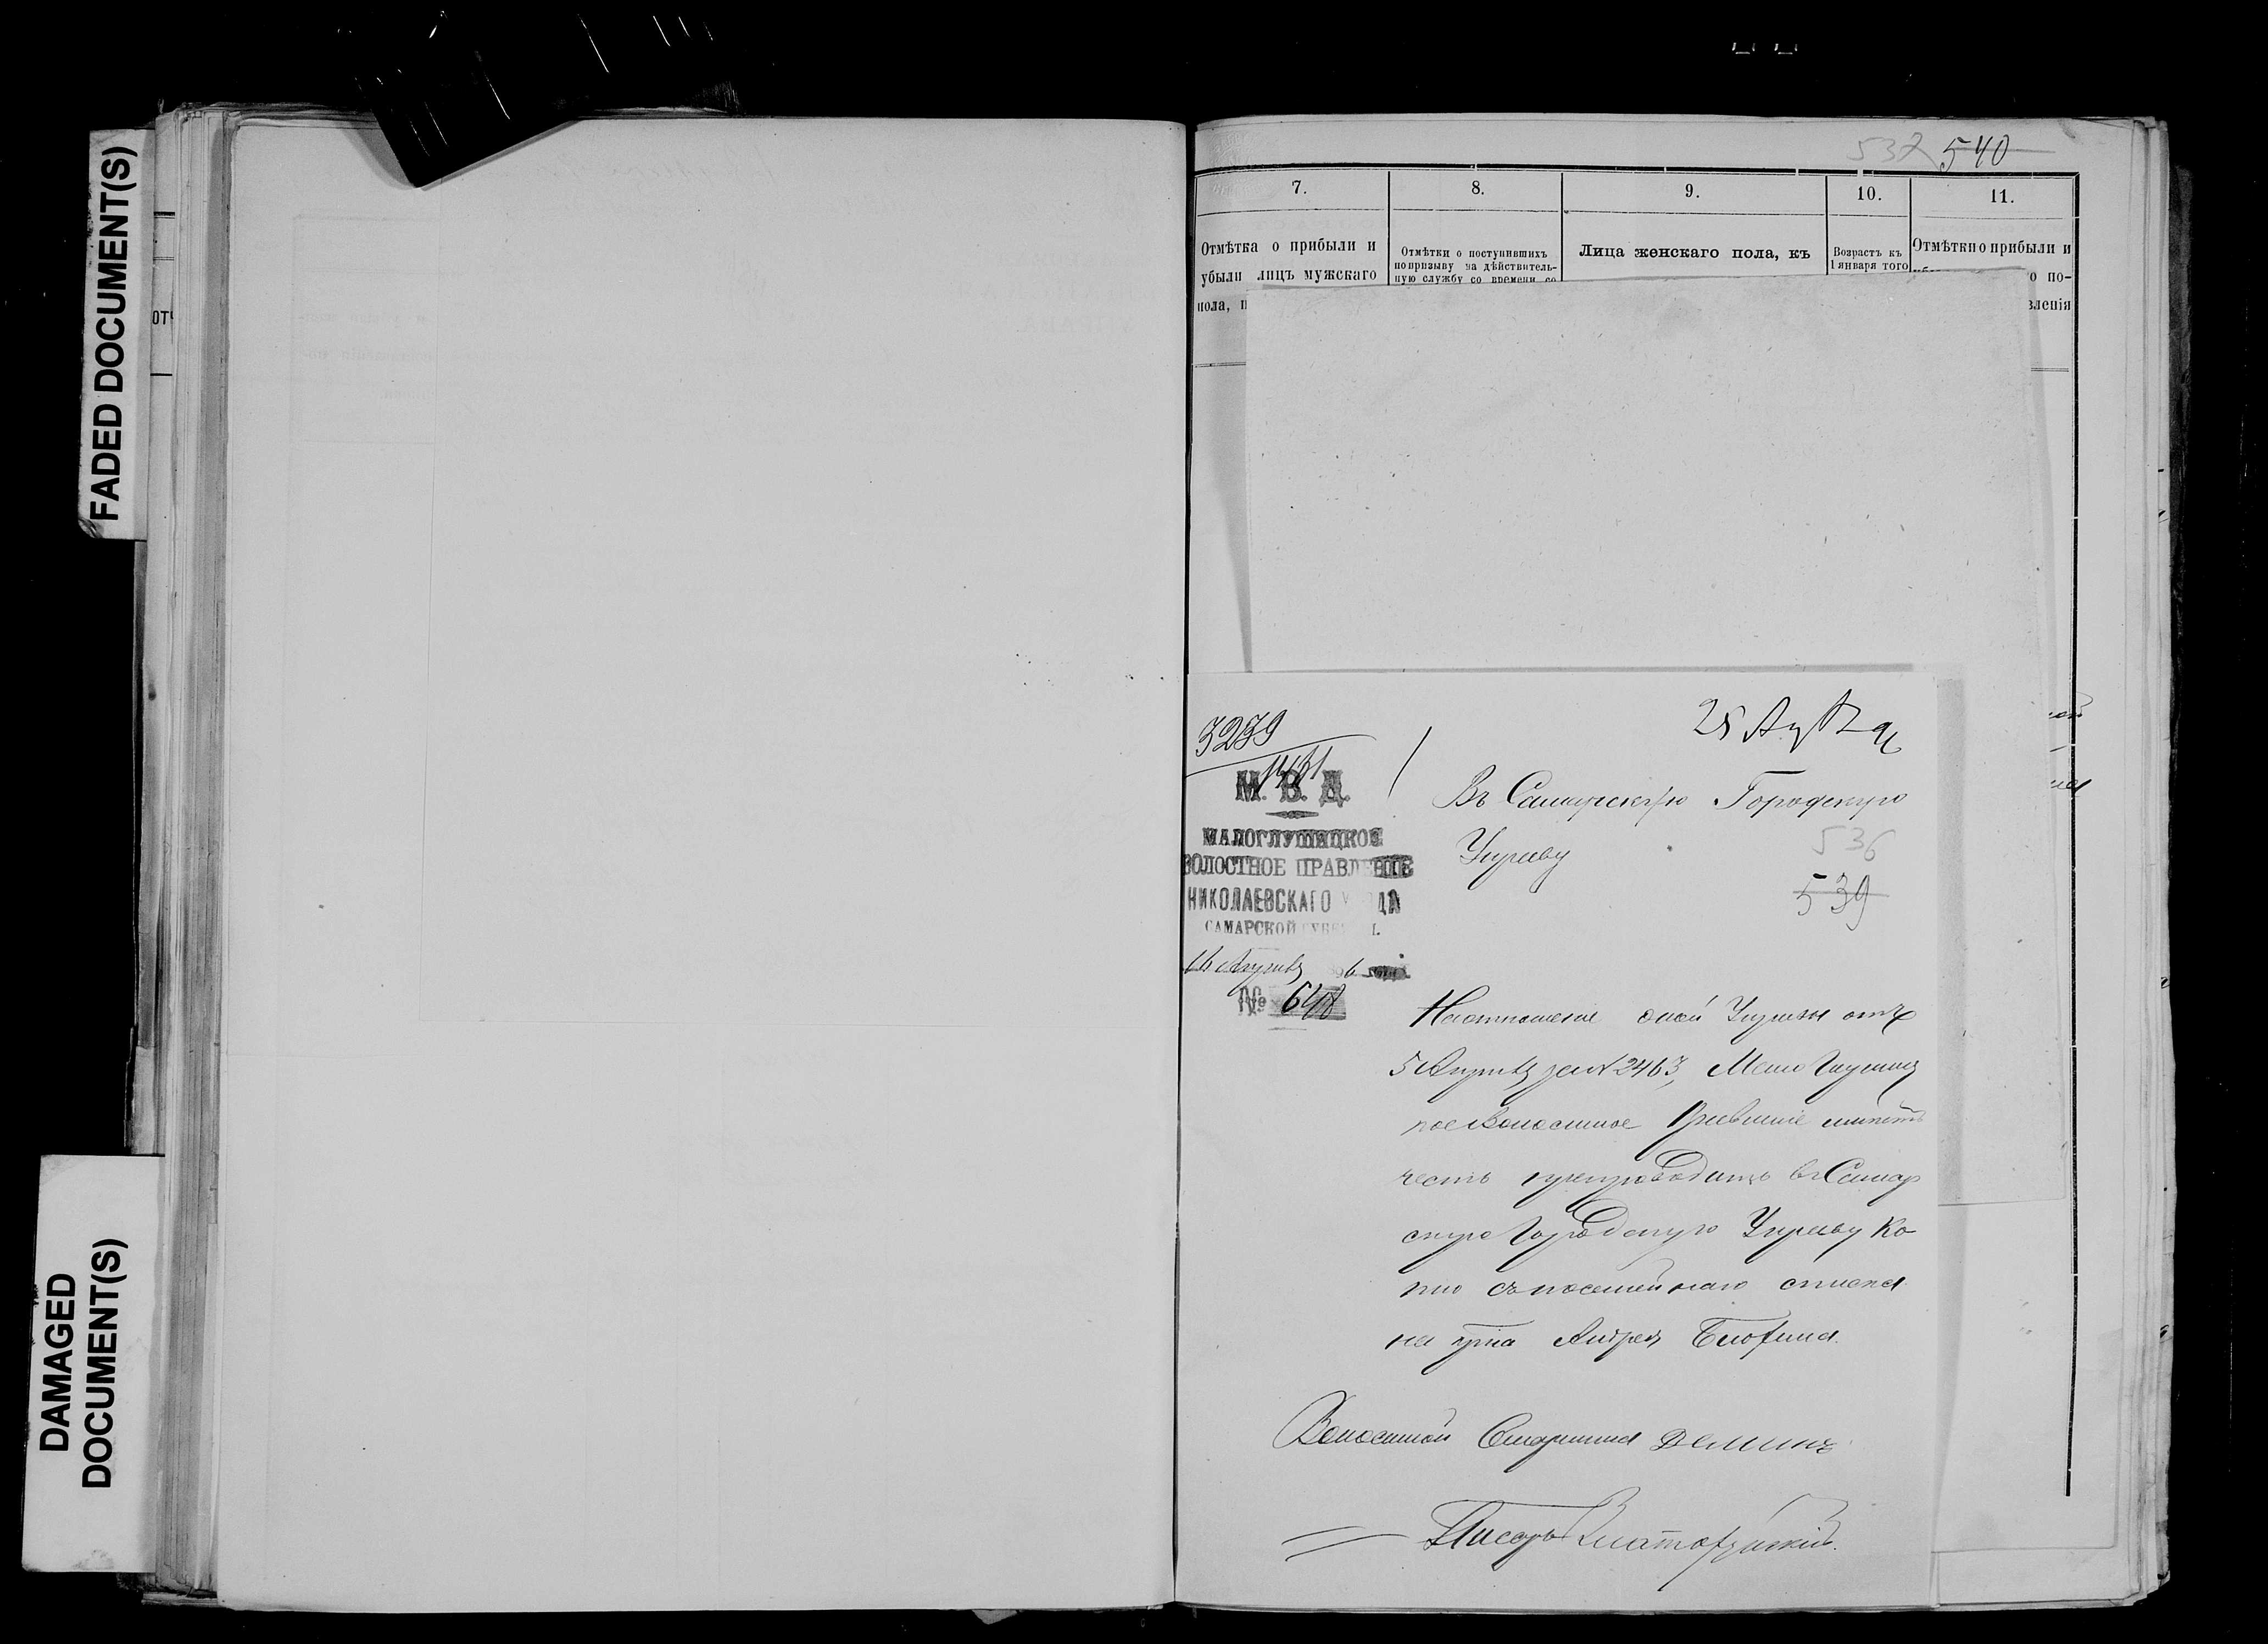 FADED DOCUMENT(S)
DAMAGED
DOCUMENT(S)
537 540
7. 8. 9. 10. 11.
Отмѣтка о прибыли и
убыли лицъ мужскаго
пола, п
Отмѣтки о поступившихъ
по призыву на дѣйствитель-
ную службу со времени со
Лица женскаго пола, къ
Возрастъ къ
1 января того
Отмѣтки о прибыли и
о по-
вленія
3239
М. В. Д.
МАЛОГЛУШИЦКОЕ
ВОЛОСТНОЕ ПРАВЛЕНІЕ
НИКОЛАЕВСКАГО
САМАРСКОЙ ГУБЕ
16 Апрѣля
№ 648
25 Ап
Въ Самарскую Городскую
Управу
536
539
На отношеніе оной Управы отъ
5 Апрѣля за № 2463, Мало Глушиц
кое Волостное Правленіе имѣетъ
честь препроводить въ Самар
скую Городскую Управу Ко
пію съ посемейнаго списка
на кр-на Андрея Блохина.
Волостной Старшина Деминъ
Писарь